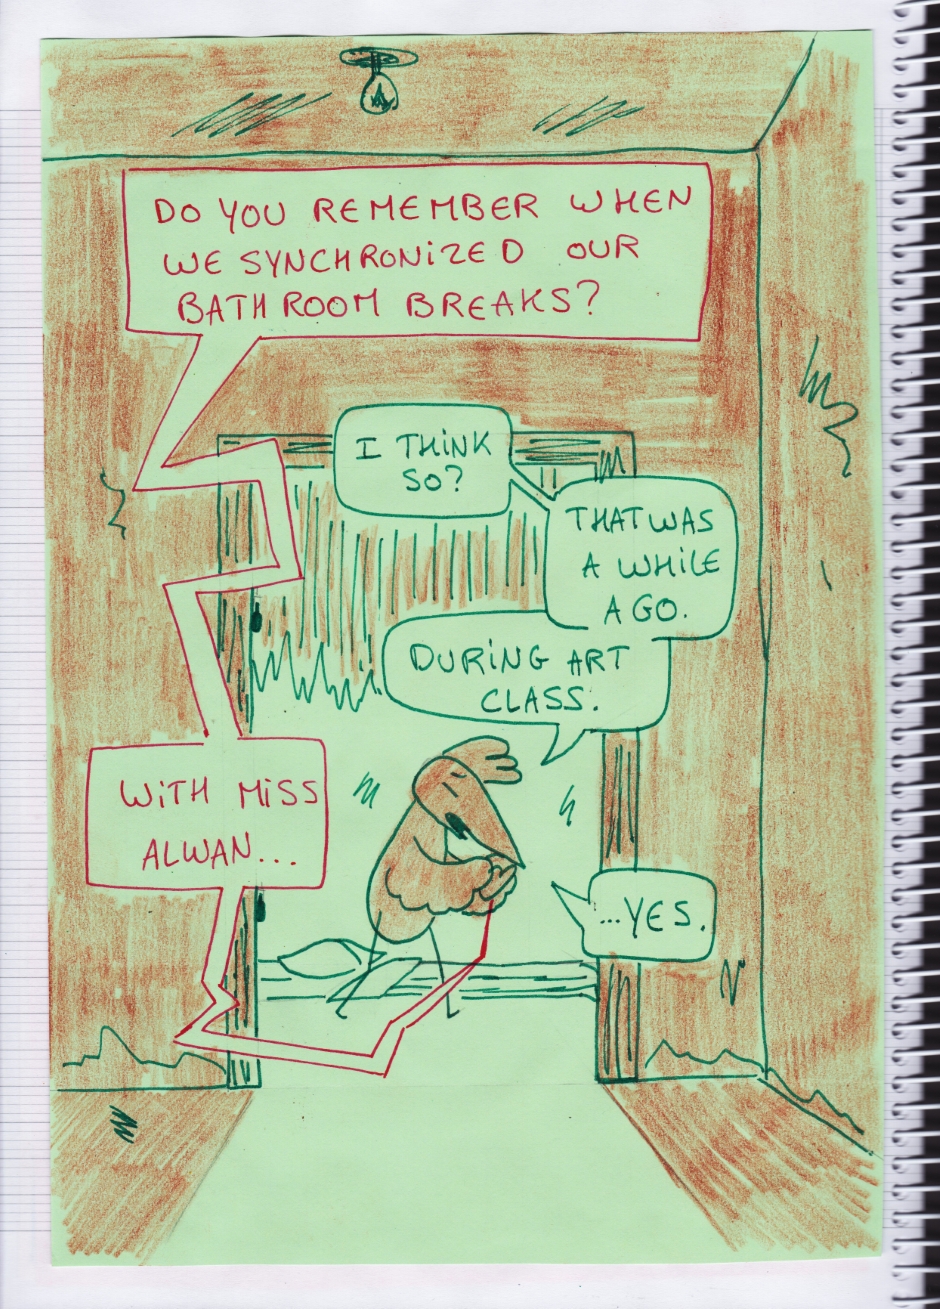 DO YOU REMEMBER WHEN
WE SYNCHRONiZED OUR
BATHROOM BREAKS?
I THiNK
SO?
THAT WAS
A WHiLE
AGO.
DURiNG ART
CLASS.
WiTH MiSS
ALWAN...
...YES.